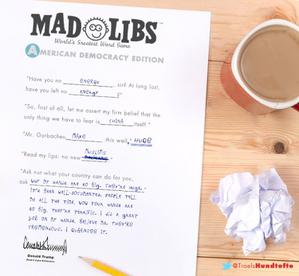 MAD LIBS
World's Greatest Word Game
AMERICAN DEMOCRACY EDITION
"Have you no ENERGY, sir? At long last,
have you left no ENERGY?"
"So, first of all, let me assert my firm belief that
the only thing we have to fear is CHINA itself."
"Mr. Gorbachev, MAKE this wall HUGE
"Read my lips: no new MUSLIMS
"Ask not what your country can do for you,
ask
MY HANDS ARE SO BIG. THEY'RE HUGE.
IT'S BEEN WELL-DOCUMENTED. PEOPLE TELL
ME ALL THE TIME, HOW YOUR HANDS ARE
SO BIG. THEY'RE TERRIFIC. I DO A GREAT
JOB ON MY HANDS. BELIEVE ME. THEY'RE
TREMENDOUS. I GUARANTEE IT.
Donald Trump
@TroelsHundtofte